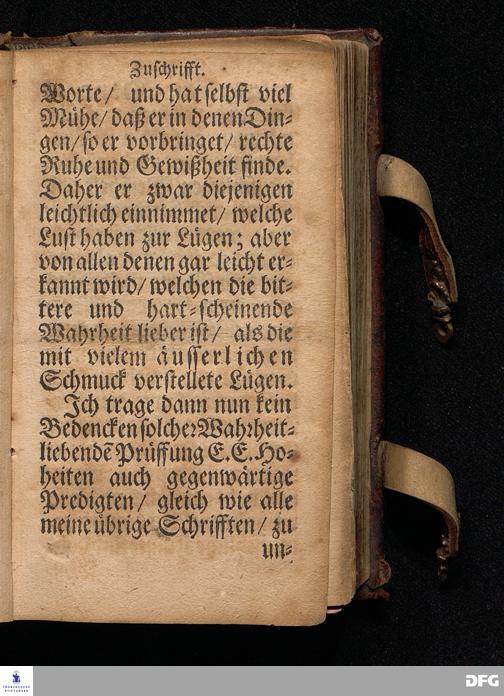 Zuschrifft.
Worte/ und hat selbst viel
Mühe/ daß er in denen Din-
gen/ so er vorbringet/ rechte
Ruhe und Gewißheit finde.
Daher er zwar diejenigen
leichtlich einnimmet/ welche
Lust haben zur Lügen; aber
von allen denen gar leicht er-
kannt wird/ welchen die bit-
tere und hart-scheinende
Wahrheit lieber ist/ als die
mit vielem äusserlichen
Schmuck verstellete Lügen.
Ich trage dann nun kein
Bedencken solcher Wahrheit-
liebendẽ Prüffung E. E. Ho-
heiten auch gegenwärtige
Predigten/ gleich wie alle
meine übrige Schrifften/ zu
un-
FRANCKESCHE
STIFTUNGEN
DFG